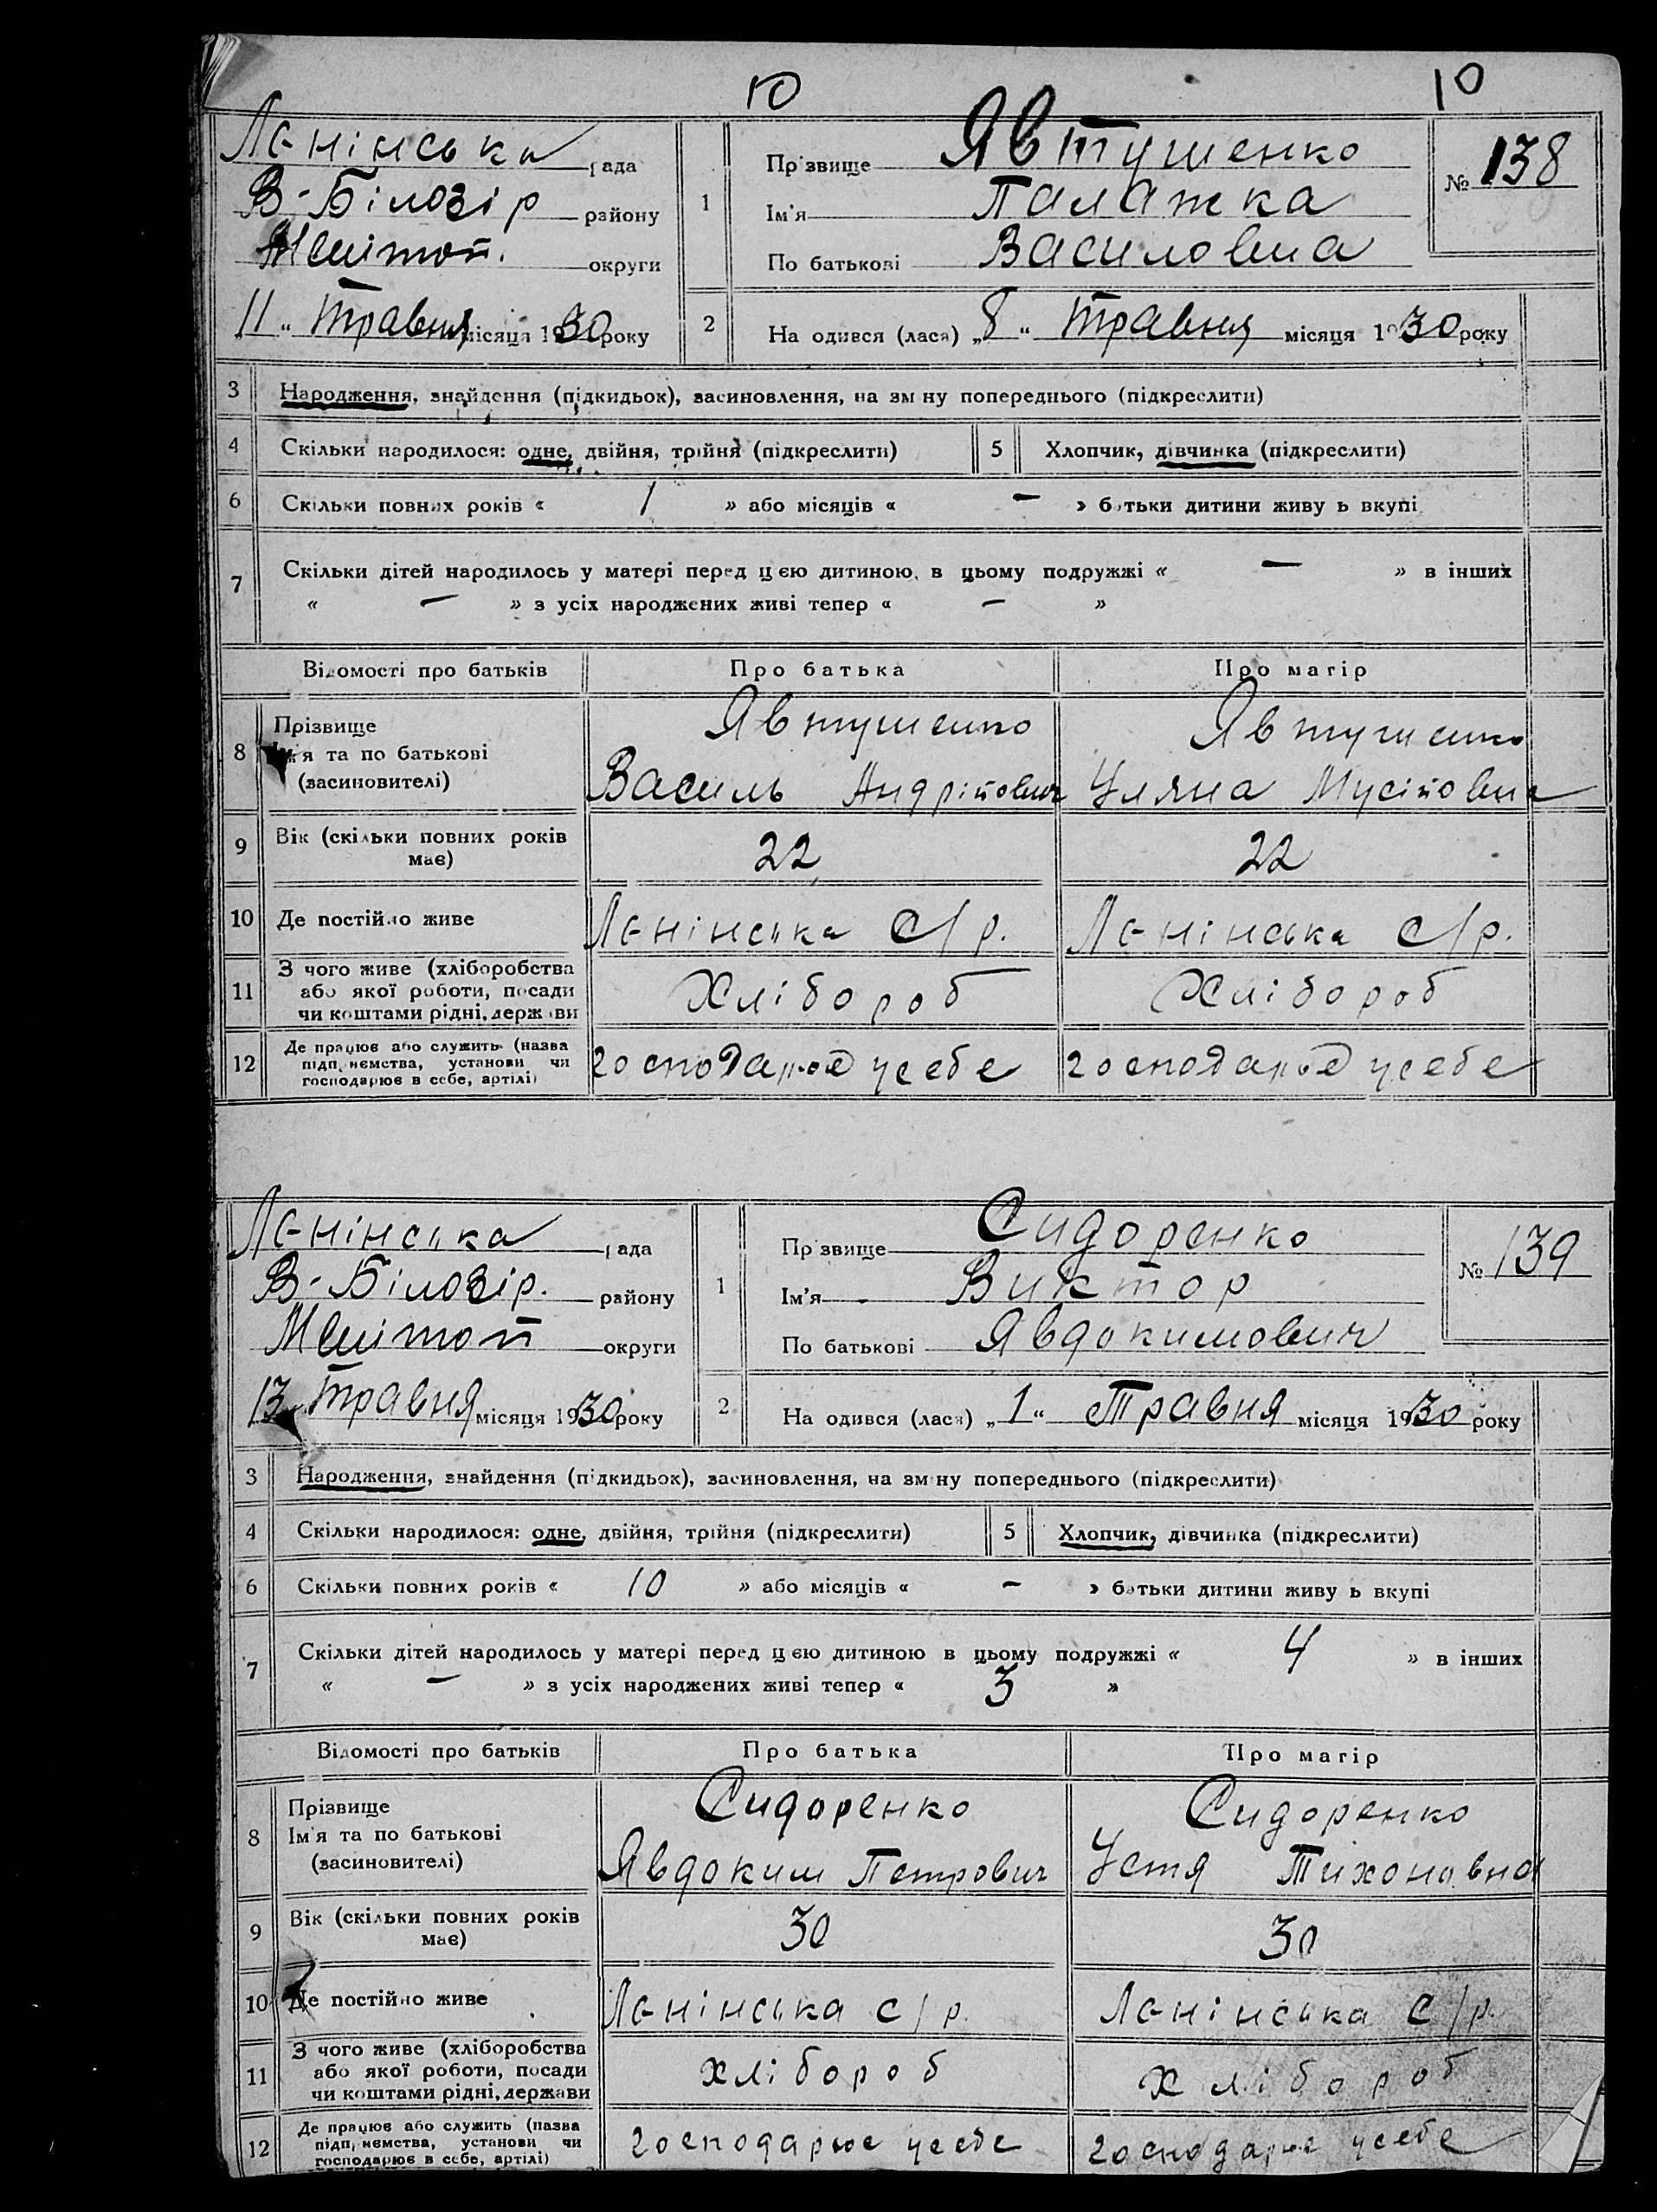 10 10
Лєнінська рада
В-Білозір району
Меліттоп. округи
11 " Травня місяця 1930 року
1 Прізвище Явтушенко
Ім'я Палажка
По батькові Василовна
№ 138
2 На одився (лася) „8" Травня місяця 1930 року
3 Народження, знайдення (підкидьок), засиновлення, на зм ну попереднього (підкреслити)
4 Скільки народилося: одне, двійня, трійня (підкреслити) 5 Хлопчик, дівчинка (підкреслити)
6 Скільки повних років « 1 » або місяців « – » батьки дитини живу ь вкупі
7 Скільки дітей народилось у матері перед цією дитиною в цьому подружжі « – » в інших
« – » з усіх народжених живі тепер « – »
Відомості про батьків Про батька Про матір
8 Прізвище Явтушенко Явтушенко
Ім'я та по батькові
(засиновителі) Василь Андрійович Уляна Мусійовна
9 Вік (скільки повних років
має) 22 22
10 Де постійно живе Лєнінська с/р. Лєнінська с/р.
11 З чого живе (хліборобства
або якої роботи, посади Хлібороб Хлібороб
чи коштами рідні, держави
12 Де працює або служить (назва
підприємства, установи чи господарює усебе господарює усебе
господарює в себе, артілі)
Лєнінська рада
В-Білозір. району
Меліттоп округи
13 Травня місяця 1930 року
1 Прізвище Сидоренко
Ім'я Виктор
По батькові Явдокимович
№ 139
2 На одився (лася) „1" Травня місяця 1930 року
3 Народження, знайдення (підкидьок), засиновлення, на зм ну попереднього (підкреслити)
4 Скільки народилося: одне, двійня, трійня (підкреслити) 5 Хлопчик, дівчинка (підкреслити)
6 Скільки повних років « 10 » або місяців « – » батьки дитини живу ь вкупі
7 Скільки дітей народилось у матері перед цією дитиною в цьому подружжі « 4 » в інших
« – » з усіх народжених живі тепер « 3 »
Відомості про батьків Про батька Про матір
8 Прізвище Сидоренко Сидоренко
Ім'я та по батькові
(засиновителі) Явдоким Петрович Устя Тихоновна
9 Вік (скільки повних років
має) 30 30
10 Де постійно живе Лєнінська с/р. Лєнінська с/р.
11 З чого живе (хліборобства
або якої роботи, посади хлібороб хлібороб
чи коштами рідні, держави
12 Де працює або служить (назва
підприємства, установи чи господарює усебе господарює усебе
господарює в себе, артілі)